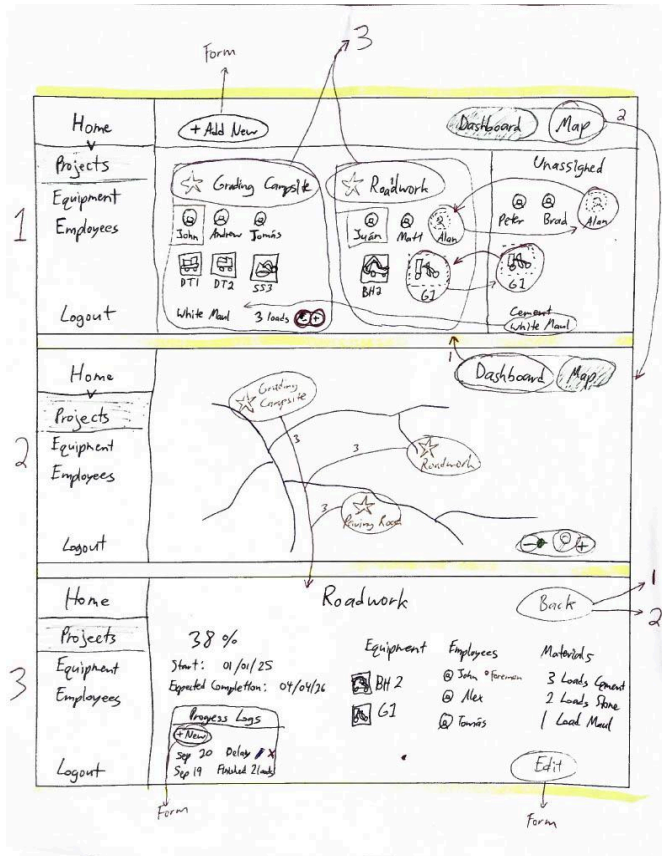 Form
3
+ Add New
Dashboard
Map
2
1
Home
Projects
Equipment
Employees
Logout
Grading Campsite
John
Andrew
Tomás
DT1
DT2
SS3
White Marl
3 loads
- +
Roadwork
Juán
Matt
Alan
BH2
G1
Unassigned
Peter
Brad
Alan
G1
Cement
White Marl
1
2
Home
Projects
Equipment
Employees
Logout
Dashboard
Map
Grading
Campsite
3
3
Roadwork
3
Paving Road
- +
3
Home
Projects
Equipment
Employees
Logout
Roadwork
Back
1
2
38 %
Start: 01/01/25
Expected Completion: 04/04/26
Progress Logs
+ New
Sep 20 Delay X
Sep 19 Finished 2 loads
Form
Equipment
BH 2
G1
Employees
John Foreman
Alex
Tomás
Materials
3 Loads Cement
2 Loads Stone
1 Load Marl
Edit
Form